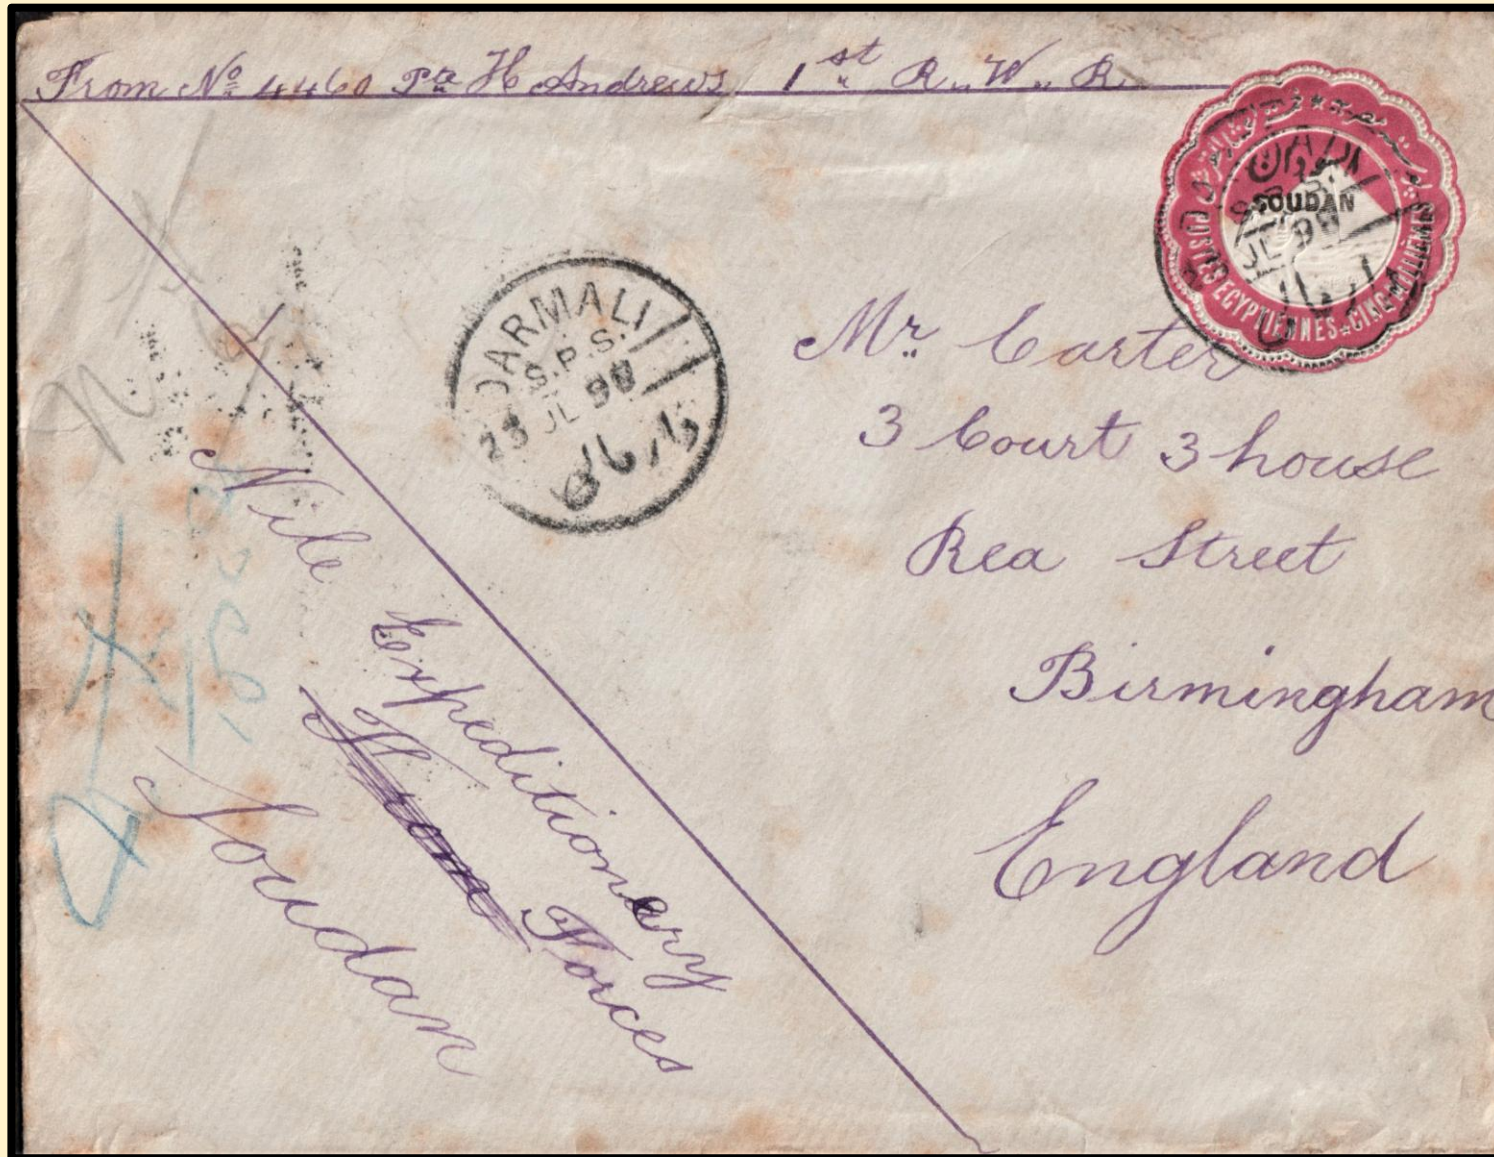 From Nº 4460 Pte H Andrews 1st R. W. R.
SOUDAN
POSTES EGYPTIENNES CINQ MILLIEMES
DARMALI
S.P.S.
23 JL 98
دارمالى
Mr Carter
3 Court 3 house
Rea Street
Birmingham
England
Nile
Expeditionary
From Forces
Soudan